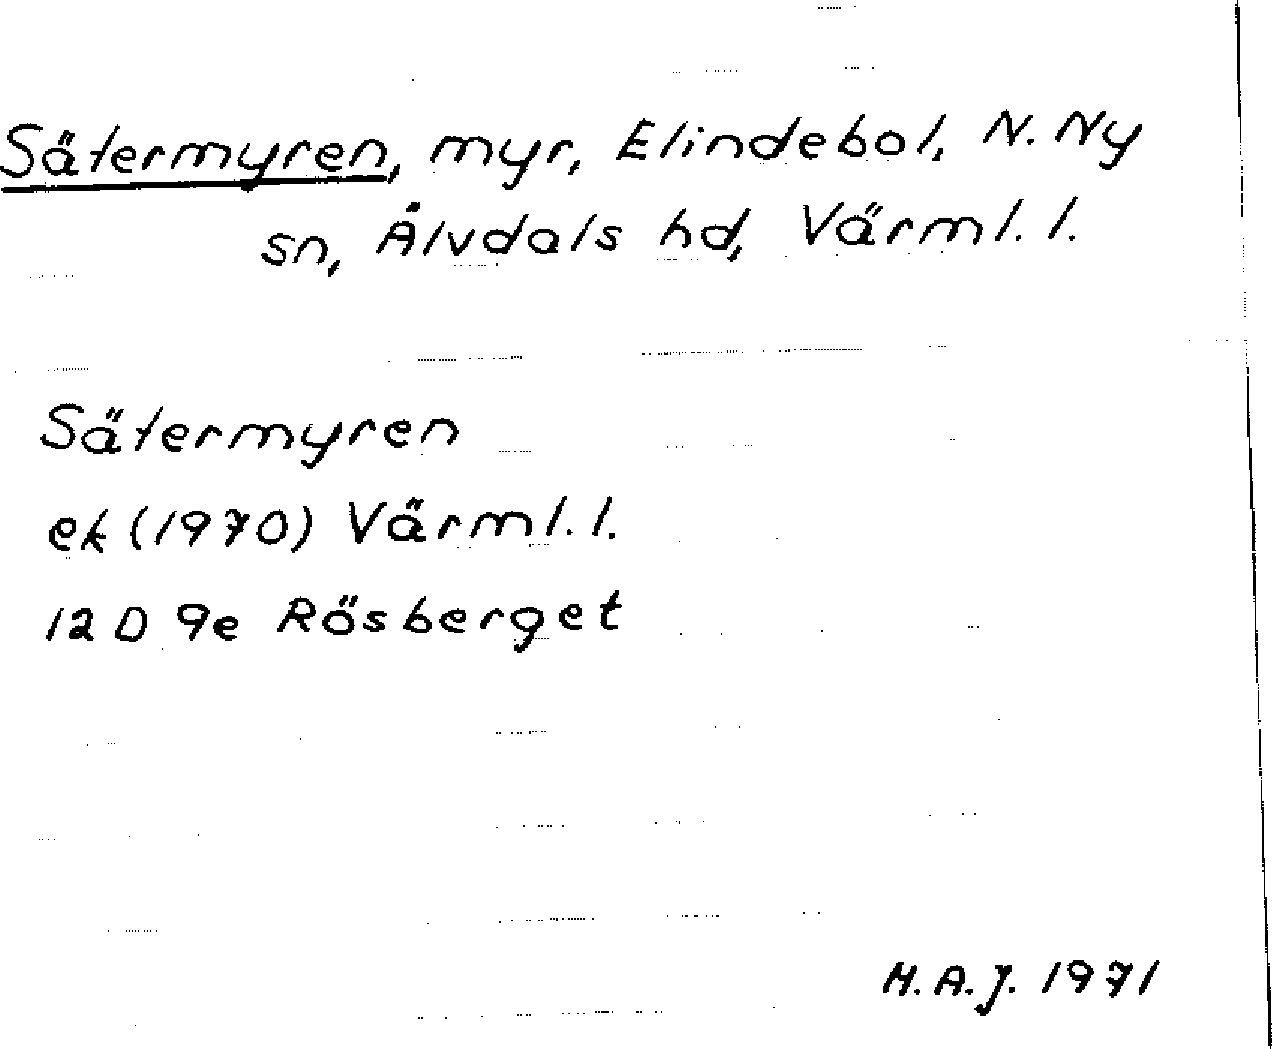 Sätermyren, myr, Elindebol, N. Ny
sn, Älvdals hd, Värml. l.
Sätermyren
ek (1970) Värml. l.
12 D 9e Rösberget
H. A. J. 1971